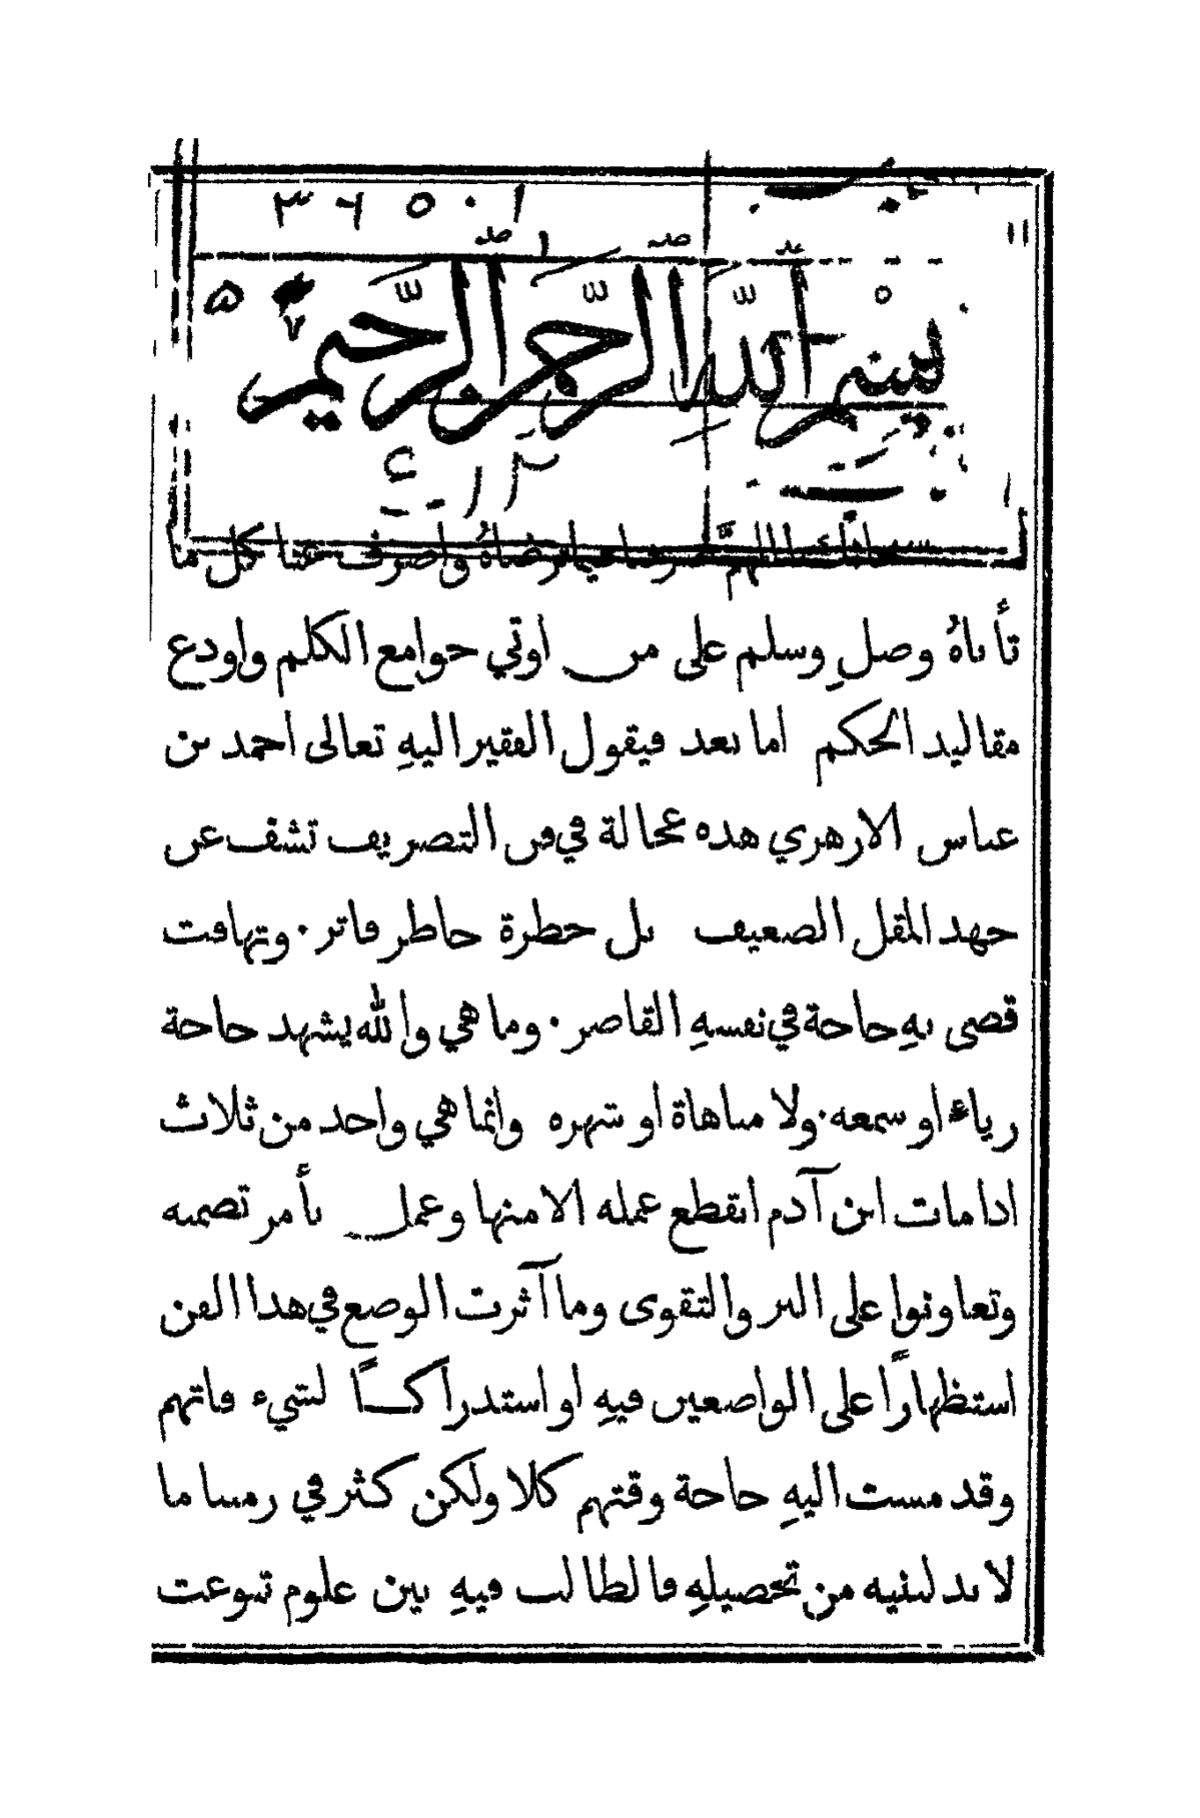 بسم الله الرحمن الرحيم
سبحانك اللهم صرفنا فيما ترضاهُ واصرف عنا كل ما
تأباهُ وصلِ وسلم على من اوتي جوامع الكلم واودع
مقاليد الحكم اما بعد فيقول الفقير اليهِ تعالى احمد بن
عباس الازهري هذه عجالة في فن التصريف تشف عن
جهد المقل الضعيف بل خطرة خاطر فاتر · وتهافت
قضى بهِ حاجة في نفسهِ القاصر · وما هي والله يشهد حاجة
رياء او سمعه · ولا مباهاة او شهره وانما هي واحد من ثلاث
اذا مات ابن آدم انقطع عمله الا منها وعمل بأمر تضمنه
وتعاونوا على البر والتقوى وما آثرت الوضع في هذا الفن
استظهاراً على الواضعين فيهِ او استدراكاً لشيء فاتهم
وقد مست اليهِ حاجة وقتهم كلا ولكن كثر في زمننا ما
لا بد لبنيه من تحصيلهِ فالطالب فيهِ بين علوم تنوعت